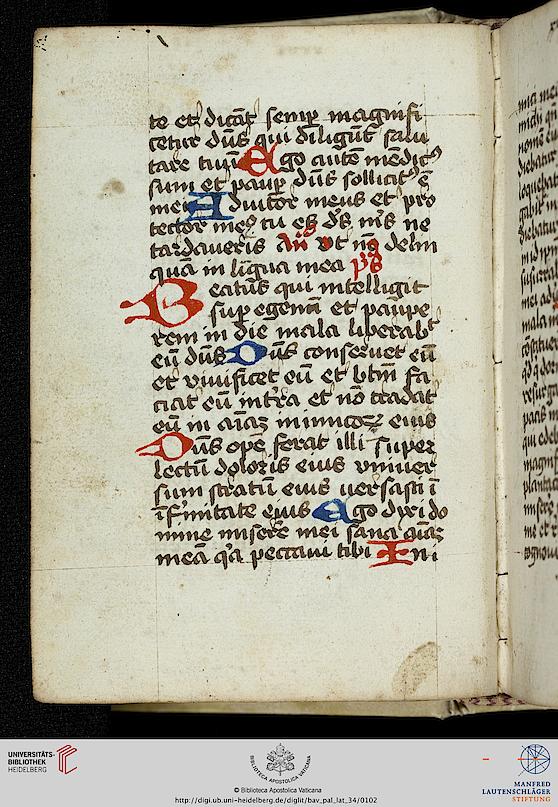 te et dicāt semp magnifi
cetur dn̄s qui diligūt salu
tare tuū Ego autē mēdicꝰ
sum et paup dn̄s sollicitꝰ ē
mei Adiutor meus et pro
tector meꝰ tu es ds̄ ms̄ ne
tardaueris An̄ vt nō delin
quā in lingua mea ps
Beatus qui intelligit
sup egenum et paupe
rem in die mala liberabt
eū dn̄s Dn̄s conseruet eū
et viuificet eū et btm̄ fa
ciat eū in tr̄ra et nō tradat
eū in aīaꝫ inimicoꝝ eius
Dn̄s opē ferat illi super
lectū doloris eius vniuer
sum stratū eius uersasti ī
īfirmitate eius Ego dixi do
mine miserē mei sana aīaꝫ
meā qa peccaui tibi Ini
UNIVERSITÄTS-
BIBLIOTHEK
HEIDELBERG
BIBLIOTECA APOSTOLICA VATICANA
© Biblioteca Apostolica Vaticana
http://digi.ub.uni-heidelberg.de/diglit/bav_pal_lat_34/0102
MANFRED
LAUTENSCHLÄGER
STIFTUNG